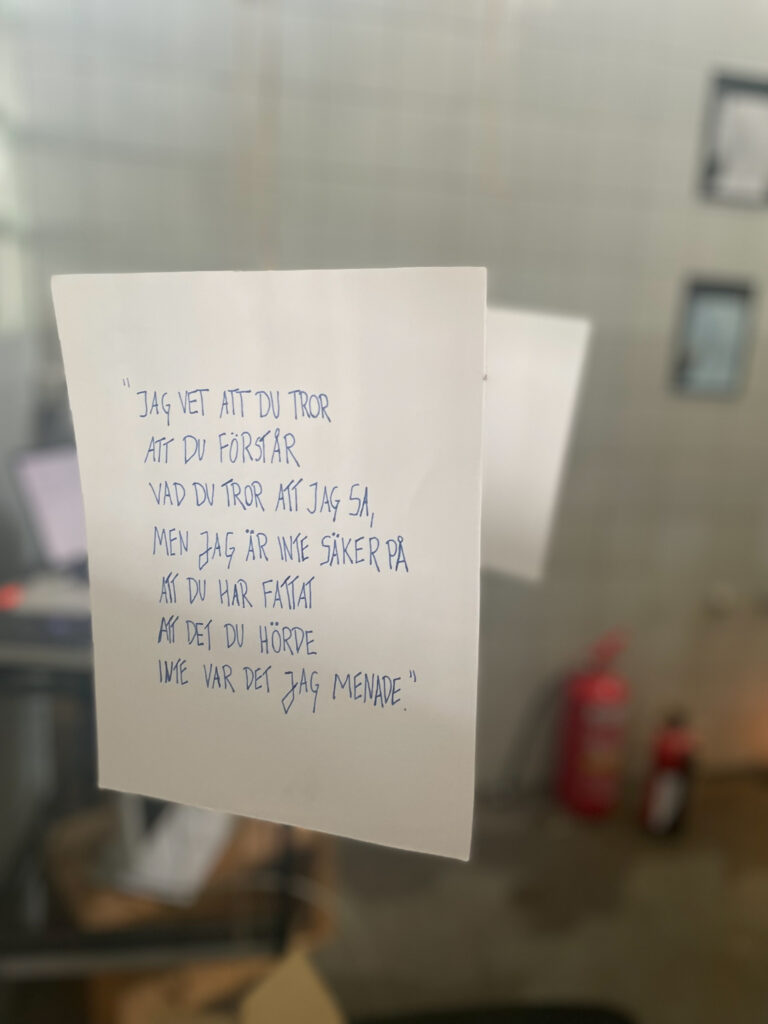 "JAG VET ATT DU TROR
ATT DU FÖRSTÅR
VAD DU TROR ATT JAG SA,
MEN JAG ÄR INTE SÄKER PÅ
ATT DU HAR FATTAT
ATT DET DU HÖRDE
INTE VAR DET JAG MENADE."